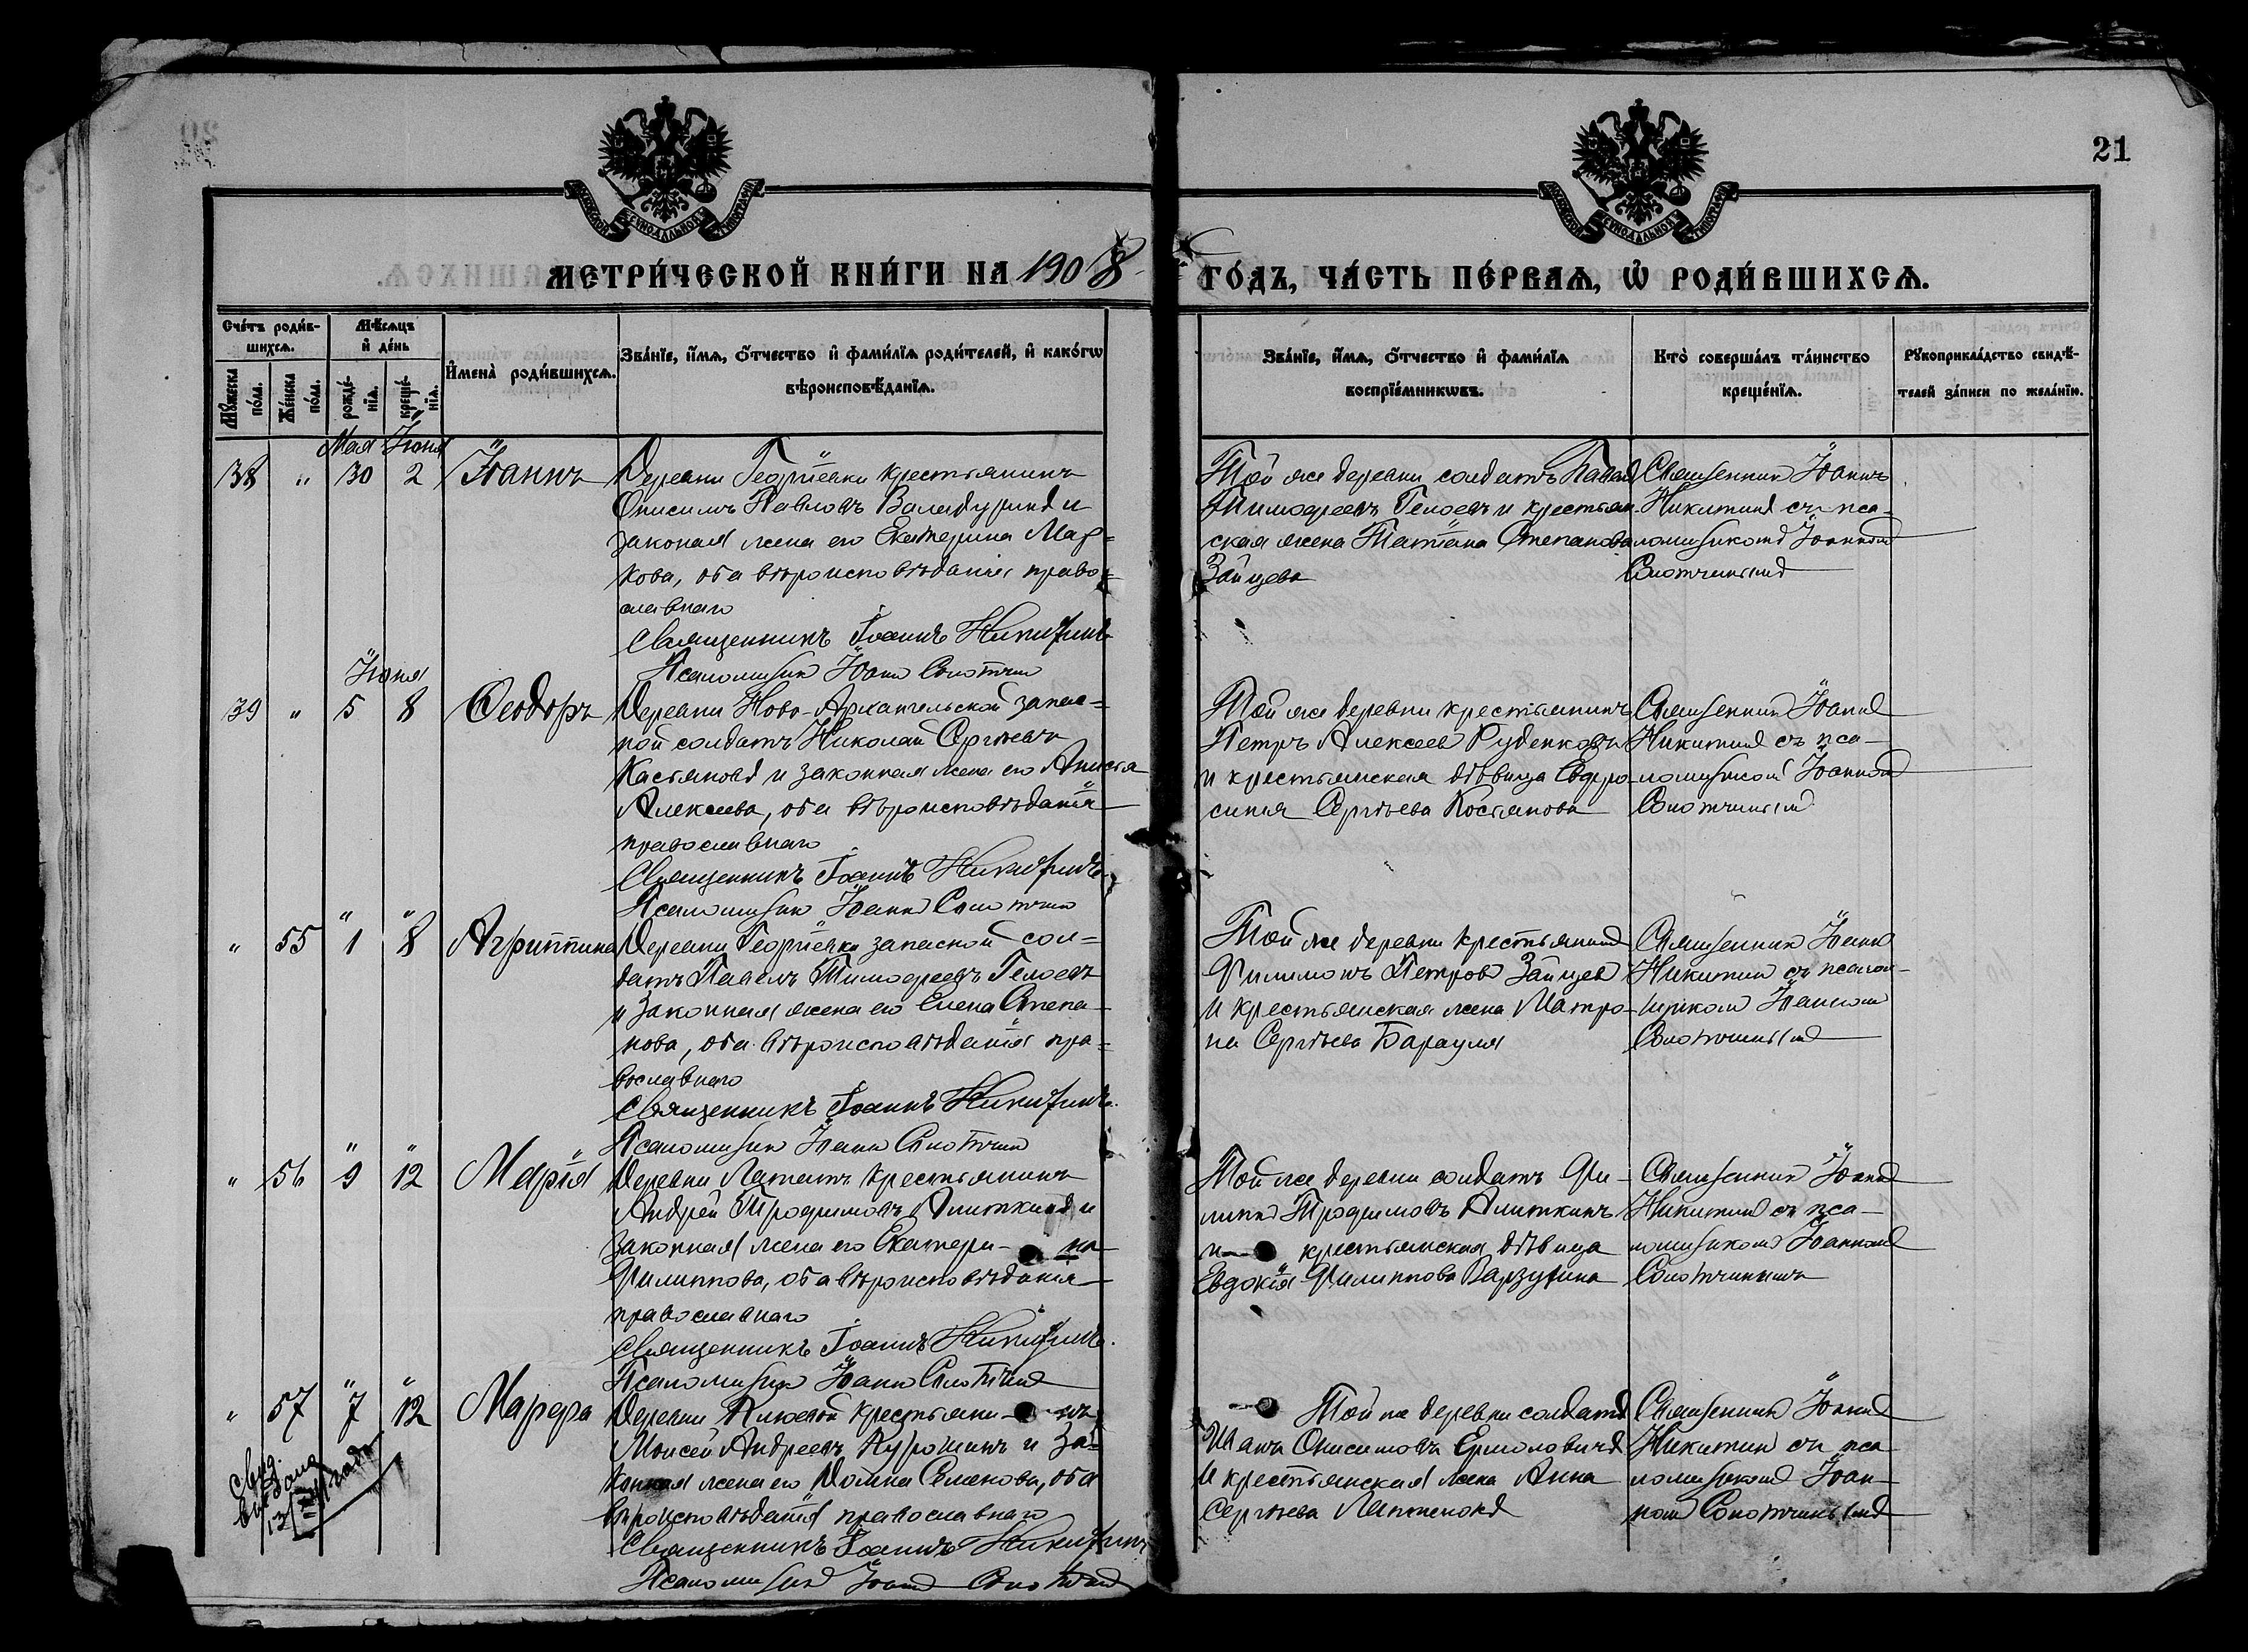 21
МЕТРИ́ЧЕСКОЙ КНИ́ГИ НА 1908
ГО́ДЪ, ЧА́СТЬ ПЕ́РВАѦ, Ѡ РОДИ́ВШИХСѦ.
Сче́тъ роди́в-
шихсѧ.
Мѣ́сѧцъ
и де́нь
Мꙋ́жеска
по́ла.
Же́нска
по́ла.
рожде́-
нїѧ.
креще́-
нїѧ.
Имена̀ роди́вшихсѧ.
Зва́нїе, и́мѧ, ѻ́тчество и фами́лїѧ роди́телей, и како́гѡ
вѣроисповѣ́данїѧ.
Зва́нїе, и́мѧ, ѻ́тчество и фами́лїѧ
воспрїе́мникѡвъ.
Кто̀ соверша́лъ та́инство
креще́нїѧ.
Рꙋкоприкла́дство свидѣ́-
телей за́писи по жела́нїю.
Мая Іюня
38 " 30 2 Іоаннъ
Деревни Георгіевки крестьянинъ
Онисимъ Павловъ и
законая жена его Екатерина Мар-
кова, оба вѣроисповѣданія право-
славнаго
Священникъ Іоаннъ Никитинъ
Псаломщик Іоанн
Той же деревни солдатъ Павел
Тимофеевъ Гелоевъ и крестьян-
ская жена Татіана Степанова
Зайцева
Священник Іоаннъ
Никитин съ пса-
ломщиком Іоанном
Іюня
39 " 5 8 Ѳеодоръ
Деревни Ново-Архангельской запас-
ной солдатъ Николай Сергѣевъ
Касьянов и законная жена его Анисія
Алексеева, оба вѣроисповѣданія
православнаго
Священникъ Іоаннъ Никитинъ
Псаломщик Іоанн
Той же деревни крестьянинъ
Петръ Алексеев Руденковъ
и крестьянская дѣвица Евфро-
синія Сергѣева Косьянова
Священник Іоанн
Никитин съ пса-
ломщиком Іоанном
" 55 1 8 Агриппина
Деревни Георгіевки запасной сол-
датъ Павелъ Тимофеевъ Гелоевъ
и законная жена его Елена Степа-
нова, оба вѣроисповѣданія пра-
вославнаго
Священникъ Іоаннъ Никитинъ.
Псаломщик Іоанн
Той же деревни крестьянин
Филимонъ Петров Зайцев
и крестьянская жена Матро-
на Сергѣева Барауля
Священник Іоанн
Никитин съ псалом-
щиком Іоанном
" 56 9 12 Марія
Деревни крестьянинъ
Андрей Трофимовъ Алиткин и
законная жена его Екатери-на
Филиппова, оба вѣроисповѣданія
православнаго
Священникъ Іоаннъ Никитинъ.
Псаломщик Іоанн
Той же деревни солдатъ Фи-
липп Трофимовъ Алиткинъ
и крестьянская дѣвица
Евдокія Филиппова
Священник Іоанн
Никитин съ пса-
ломщиком Іоанном
" 57 7 12 Марфа
Деревни Ключевой крестьяни-нъ
Моисей Андреевъ Курошинъ и за-
конная жена его Домна Семенова, оба
вѣроисповѣданія православнаго
Священникъ Іоаннъ Никитинъ
Псаломщик Іоанн
Той же деревни солдатъ
Иванъ Онисимовъ Ермоловичъ
и крестьянская жена Анна
Сергѣева
Священник Іоанн
Никитин съ пса-
ломщиком Іоан-
ном